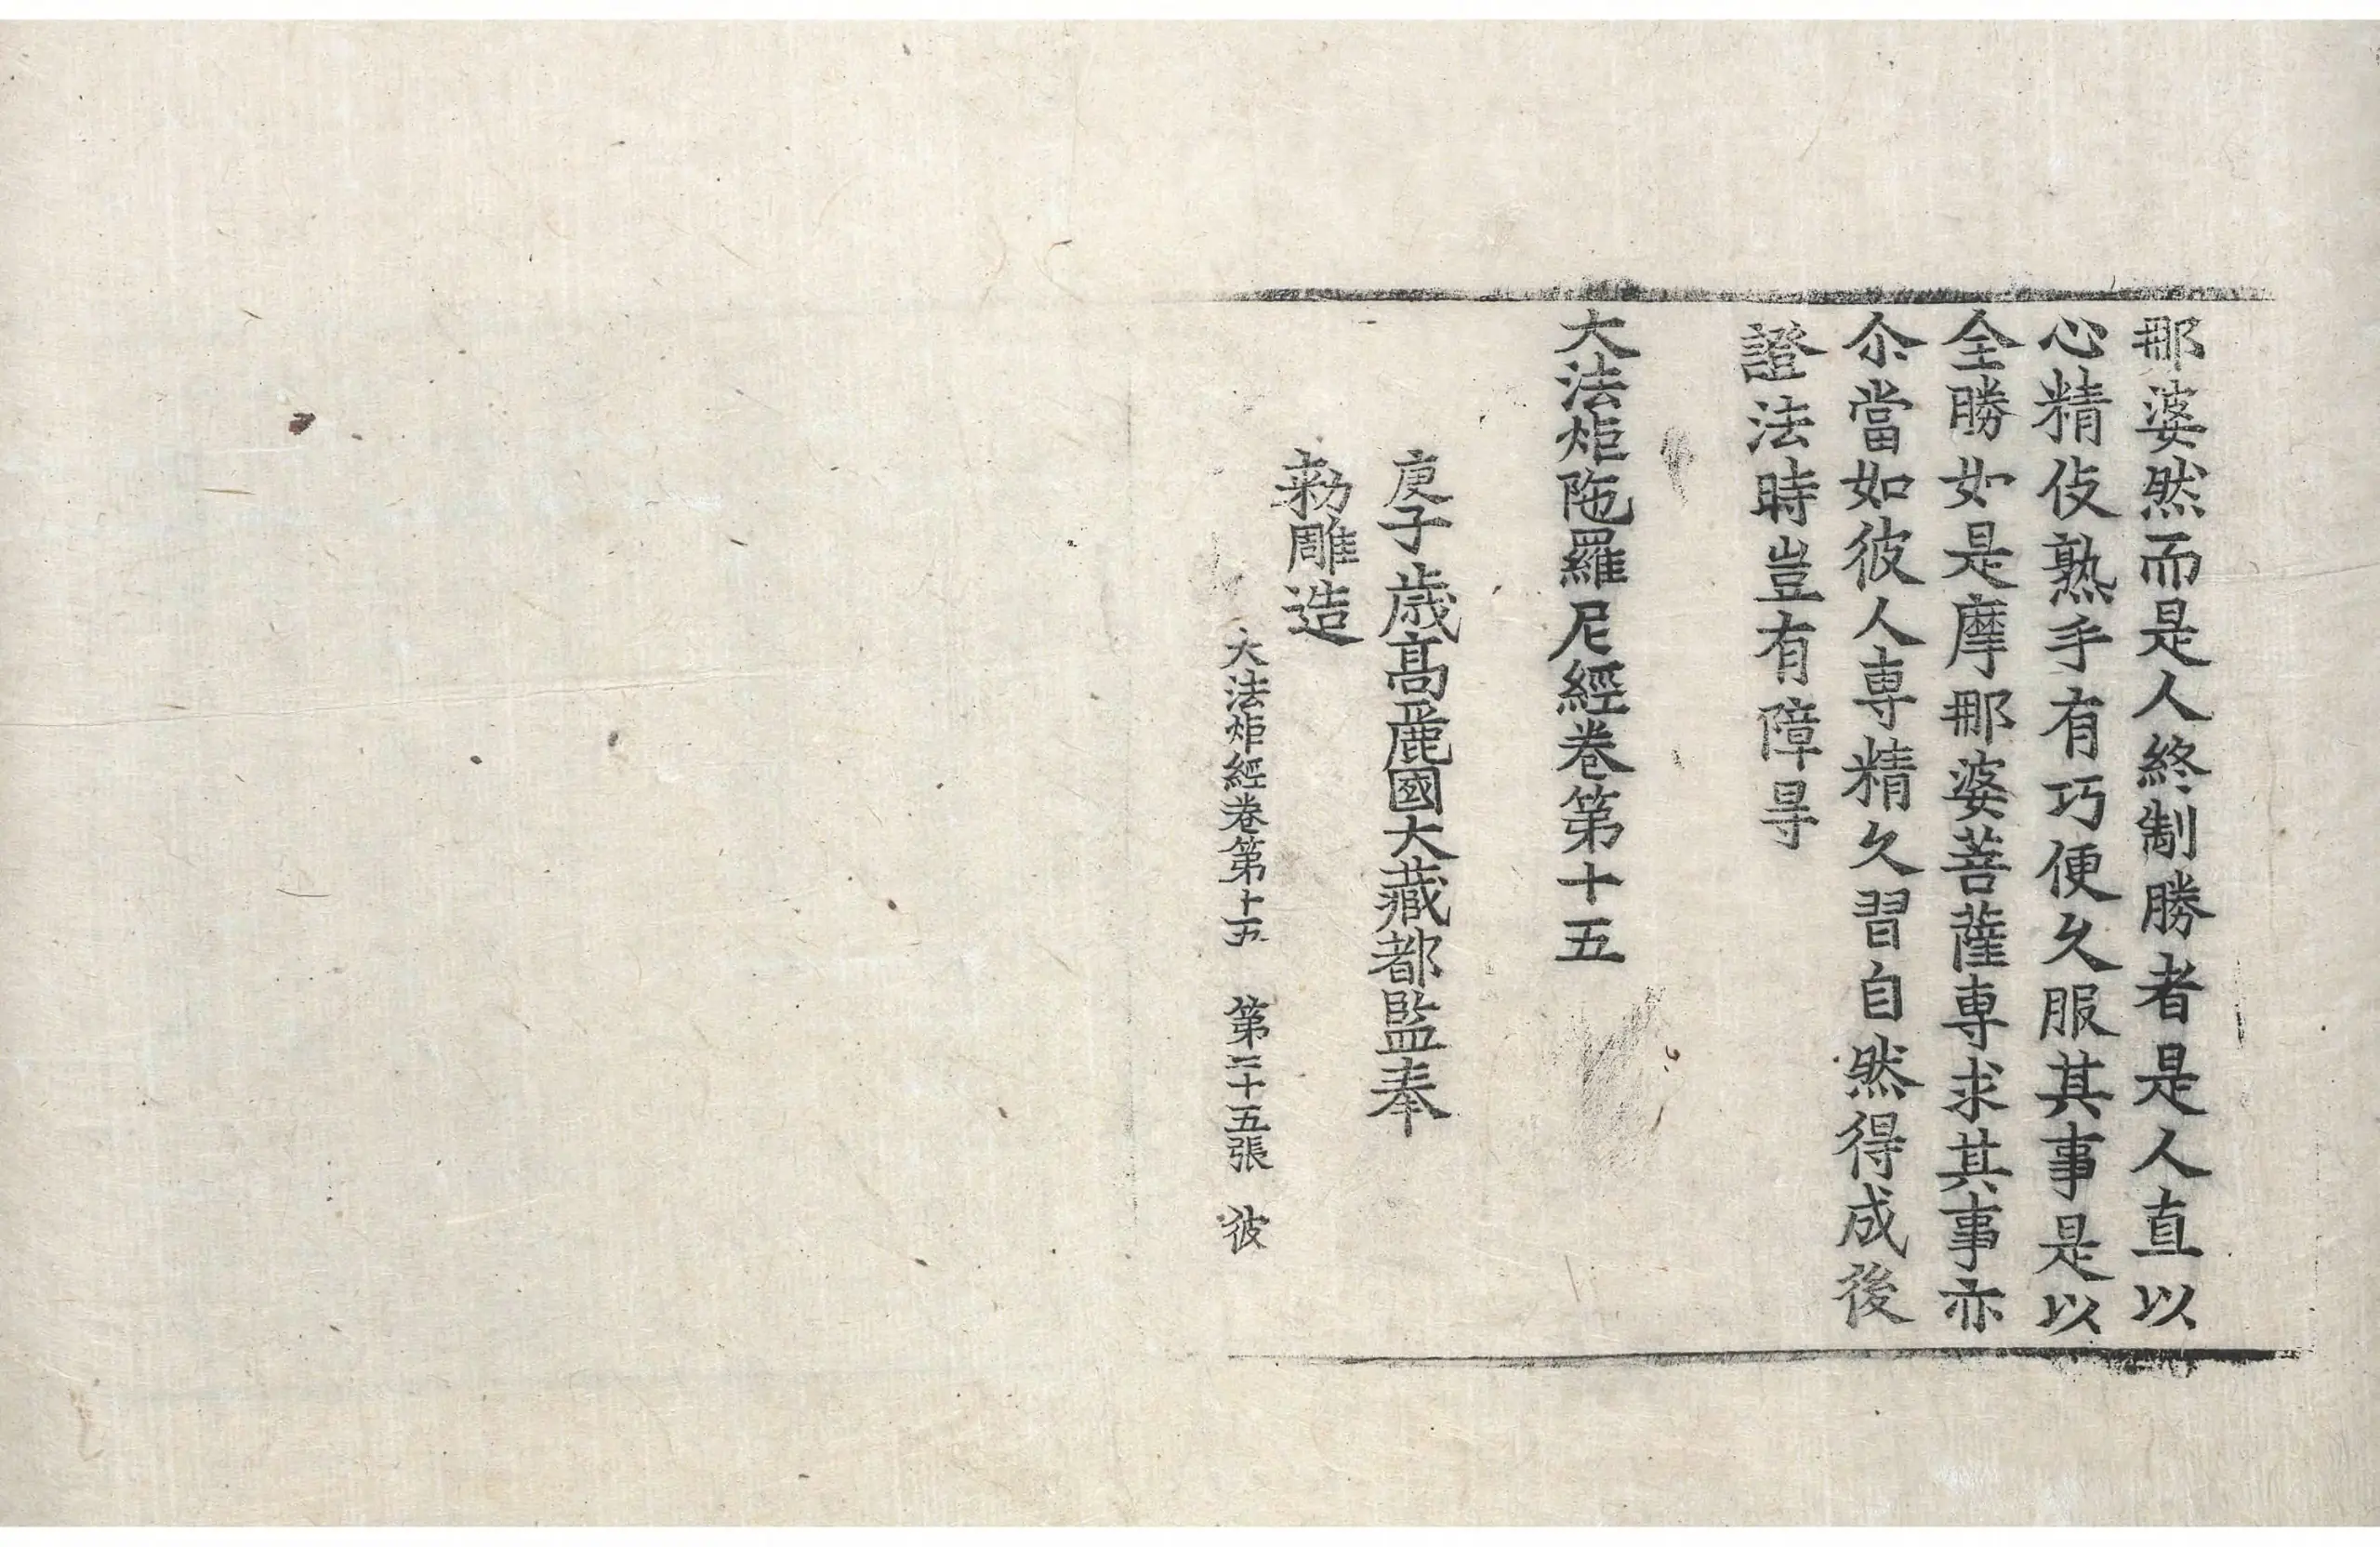 那婆然而是人終制勝者是人直以
心精伎熟手有巧便久服其事是以
全勝如是摩那婆菩薩專求其事亦
尒當如彼人專精久習自然得成後
證法時豈有障㝵
大法炬陁羅尼經卷第十五
庚子歳髙麗國大藏都監奉
勑雕造
大法炬經卷第十五 第二十五張 彼